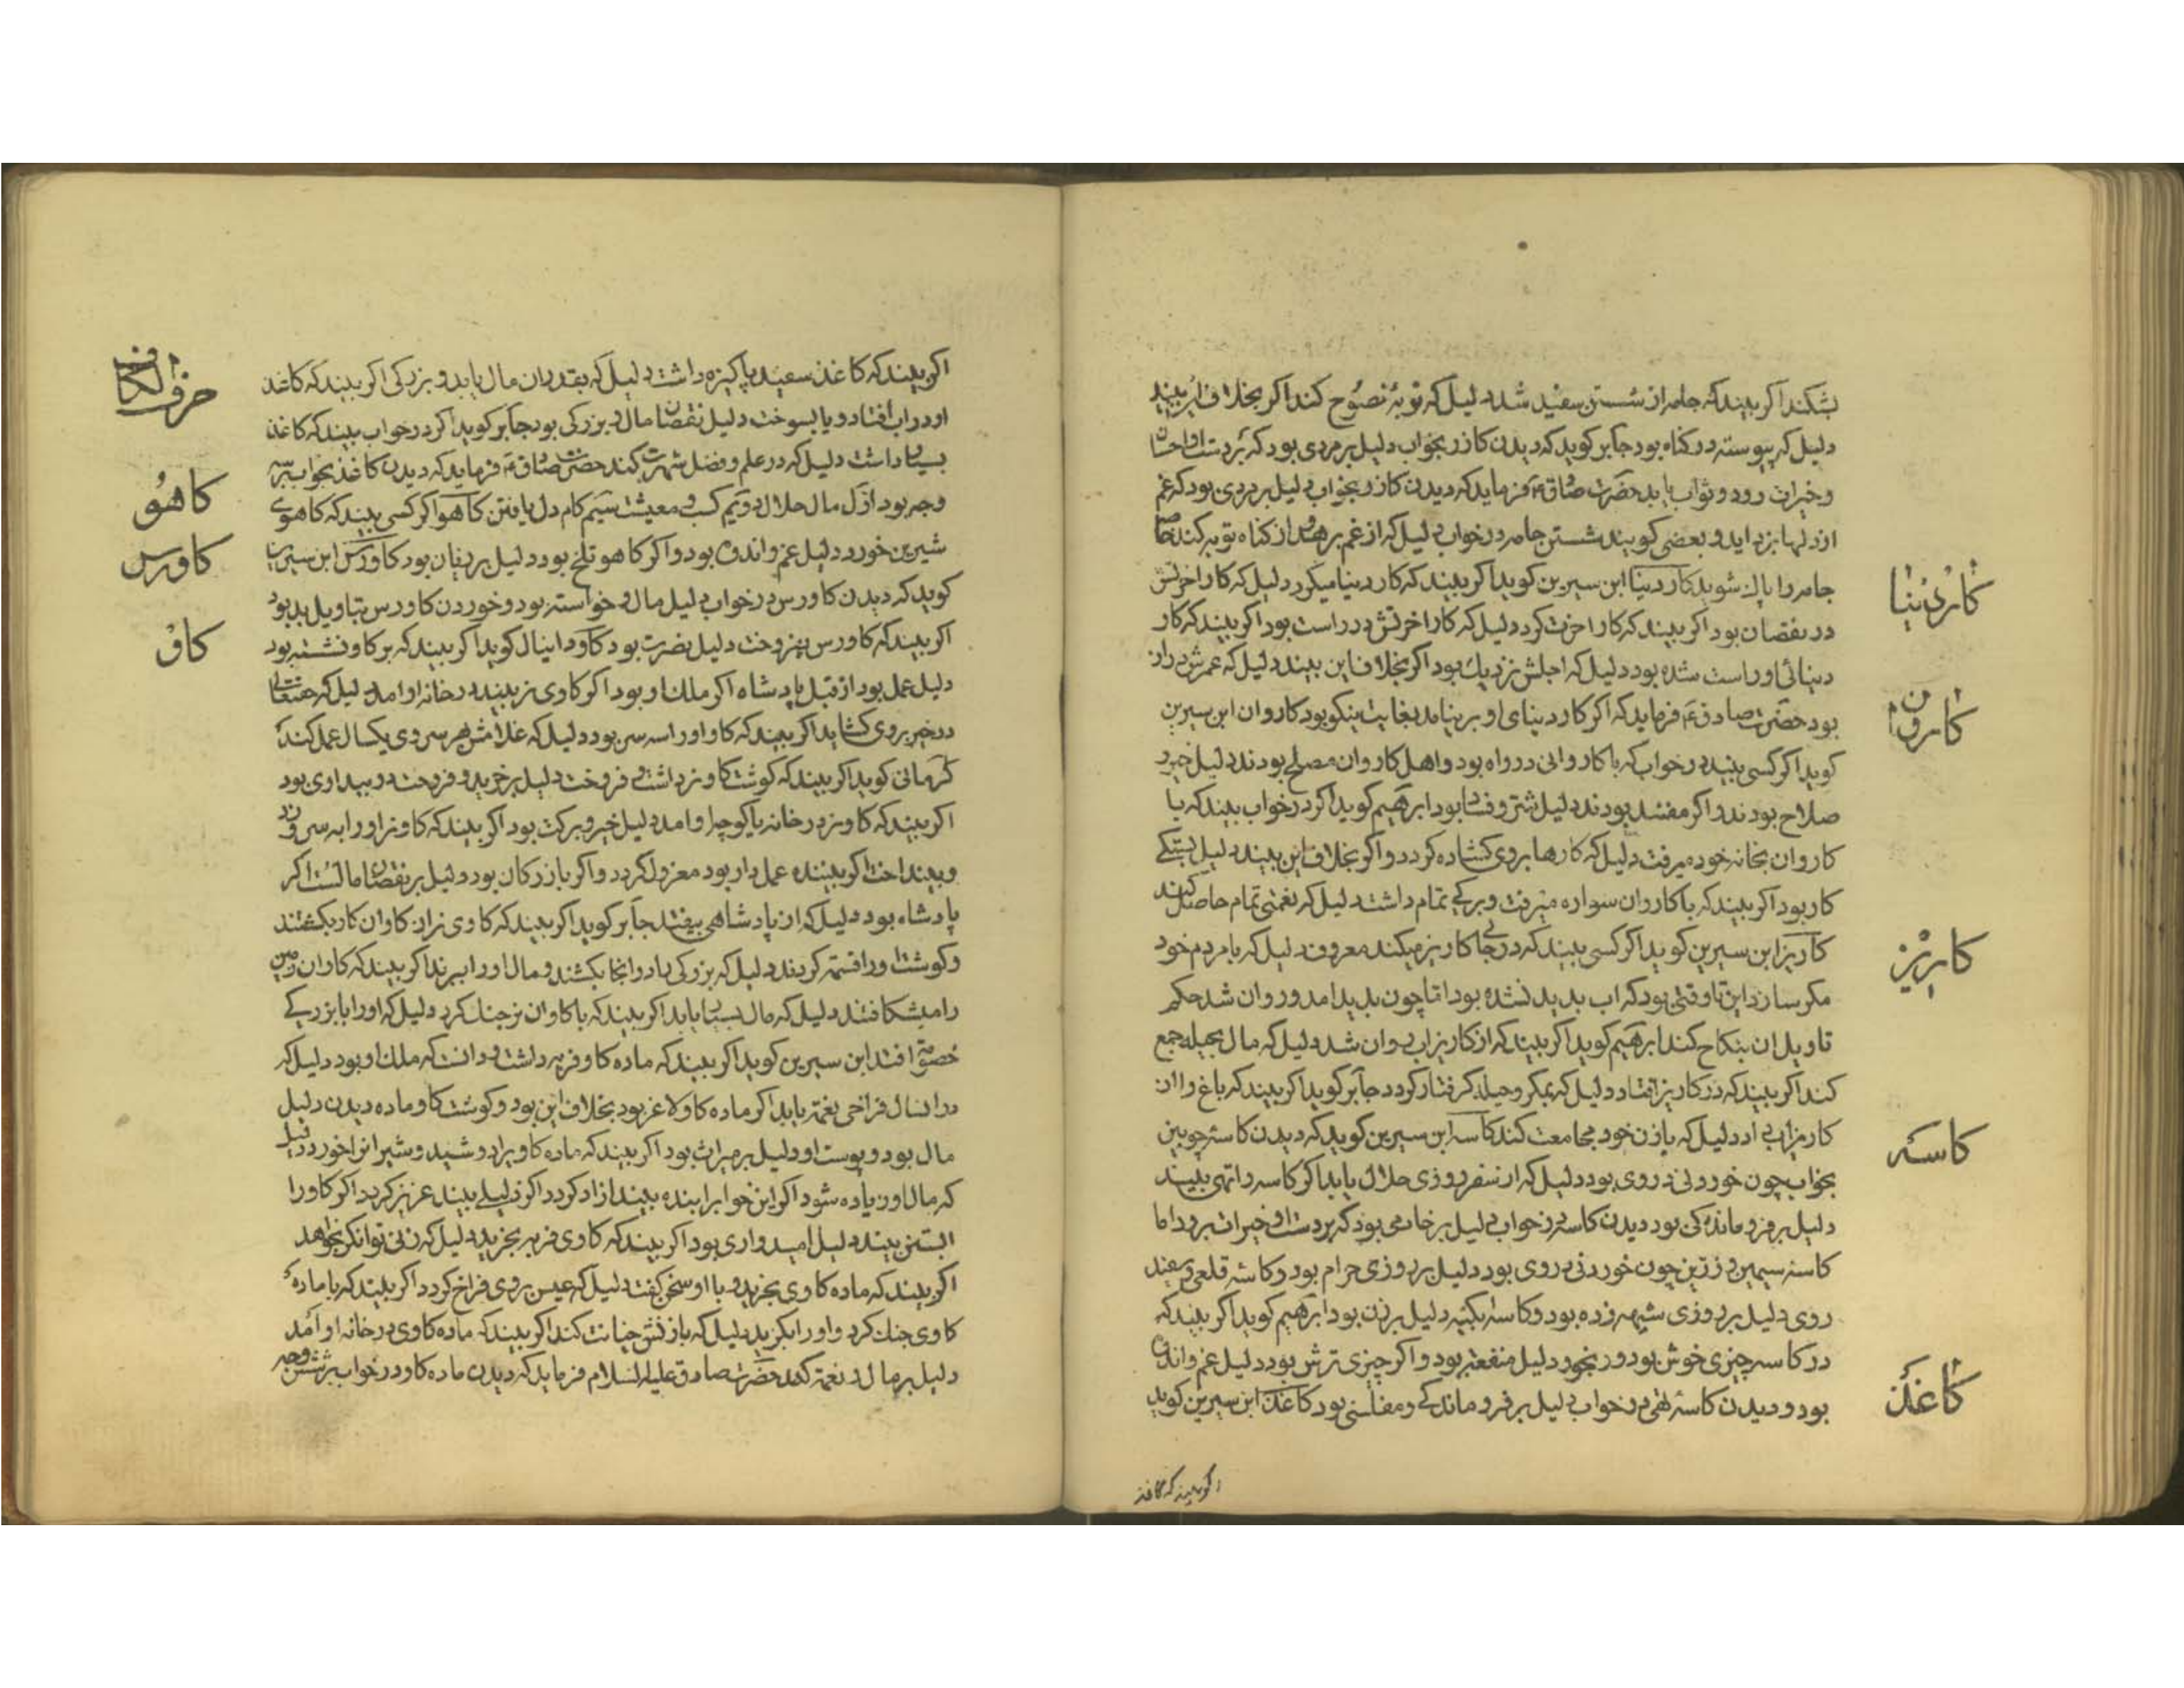 بشکند اکر بیند که جامه از شستن سفید شد دلیل که توبهٔ نصوح کند اکر بخلاف این بیند
دلیل که پیوسته در کناه بود جابر کوید که دیدن کازر بخواب دلیل بر مردی بود که بر دست او احسان
و خیرات رود و ثواب یابد حضرت صادق ع فرماید که دیدن کازر بخواب دلیل بر مردی بود که غم
از دلها بزداید و بعضی کویند شستن جامه در خواب دلیل که از غم برهد و از کناه توبه کند خاصه
جامه را پاک شوید کار دنیا ابن سیرین کوید اکر بیند که کار دنیا میکرد دلیل که کار اخرتش
در نقصان بود اکر بیند که کار اخرت کرد دلیل که کار اخرتش در راست بود اکر بیند که کار
دنیائی او راست شده بود دلیل که اجلش نزدیک بود اکر بخلاف این بیند دلیل که عمرش دراز
بود حضرت صادق ع فرماید که اکر کار دنیای او برنیامد بغایت نیکو بود کاروان ابن سیرین
کوید اکر کسی بیند در خواب که با کاروانی در راه بود و اهل کاروان مصلح بودند دلیل خیر و
صلاح بودند و اکر مفسد بودند دلیل شر و فساد بود ابرهیم کوید اکر در خواب بیند که با
کاروان بخانه خود میرفت دلیل که کارها بر وی کشاده کردد و اکر بخلاف این بیند دلیل بستکی
کار بود اکر بیند که با کاروان سواره میرفت و برکی تمام داشت دلیل که نعمتی تمام حاصل کند
کاریز ابن سیرین کوید اکر کسی بیند که در جا کاریز میکند معروف دلیل که با مردم خود
مکر سازد این تا وقتی بود که اب پدید نشده بود اما چون پدید امد و روان شد حکم
تاویل ان بنکاح کند ابرهیم کوید اکر بیند که از کاریز اب روان شد دلیل که مال بحیله جمع
کند اکر بیند که در کاریز افتاد دلیل که بمکر و حیله کرفتار کردد جابر کوید اکر بیند که باغ را از
کاریز اب داد دلیل که با زن خود مجامعت کند کاسه ابن سیرین کوید که دیدن کاسه چوبین
بخواب چون خوردنی در وی بود دلیل که از سفر روزی حلال یابد اکر کاسه را تهی بیند
دلیل بر فروماندکی بود دیدن کاسه در خواب دلیل بر خادمی بود که بر دست او خیرات برود اما
کاسه سیمین و زرین چون خوردنی در وی بود دلیل بر روزی حرام بود و کاسه قلعی و سفید
روی دلیل بر روزی شبهه زده بود و کاسه ابکینه دلیل بر زن بود ابرهیم کوید اکر بیند که
در کاسه چیزی خوش بود و بخورد دلیل منفعت بود و اکر چیزی ترش بود دلیل غم و اندوه
بود و دیدن کاسه تهی در خواب دلیل بر فروماندکی و مفلسی بود کاغذ ابن سیرین کوید
اکر بیند که کاغذ
کار دنیا
کاروان
کاریز
کاسه
کاغذ
اکر بیند که کاغذ سفید پاکیزه داشت دلیل که بقدر ان مال یابد و بزرکی اکر بیند که کاغذ
او در اب افتاد و یا بسوخت دلیل نقصان مال و بزرکی بود جابر کوید اکر در خواب بیند که کاغذ
بسیار داشت دلیل که در علم و فضل شهرت کند حضرت صادق ع فرماید که دیدن کاغذ بخواب بر سه
وجه بود اول مال حلال دویم کسب و معیشت سیم کام دل یافتن کاهو اکر کسی بیند که کاهوی
شیرین خورد دلیل غم و اندوه بود و اکر کاهو تلخ بود دلیل بر زیان بود کاورس ابن سیرین
کوید که دیدن کاورس در خواب دلیل مال و خواسته بود و خوردن کاورس بتاویل بد بود
اکر بیند که کاورس بفروخت دلیل مضرت بود کاو دانیال کوید اکر بیند که بر کاو نشسته بود
دلیل عمل بود از قبل پادشاه اکر ملک او بود اکر کاوی نر بیند در خانه او امد دلیل که حقتعالی
در خیر بر وی کشاید اکر بیند که کاو او را سه سر بود دلیل که غلامش هر سر وی یکسال عمل کند
کرمانی کوید اکر بیند که کوشت کاو نر داشت و فروخت دلیل بر خرید و فروخت و بیداوی بود
اکر بیند که کاو نر در خانه یا کوچه او امد دلیل خیر و برکت بود اکر بیند که کاو نر او را به سر وی زد
و بینداخت اکر بیننده عمل دار بود معزول کردد و اکر بازرکان بود دلیل بر نقصان مالست اکر
پادشاه بود دلیل که از پادشاهی بیفتد جابر کوید اکر بیند که کاوی نر از کاوان کار بکشتند
و کوشت او را قسمت کردند دلیل که بزرکی را در انجا بکشند و مال او را ببرند اکر بیند که کاوان زمین
را میشکافتند دلیل که مال بسیار یابد اکر بیند که با کاوان نر جنک کرد دلیل که او را با بزرکی
خصومت افتد ابن سیرین کوید اکر بیند که ماده کاو فربه داشت و دانست که ملک او بود دلیل که
در انسال فراخی نعمت یابد اکر ماده کاو لاغر بود بخلاف این بود و کوشت کاو ماده دیدن دلیل
مال بود و پوست او دلیل بر میراث بود اکر بیند که ماده کاو را دوشید و شیر ان خورد دلیل
که مال او زیاده شود اکر این خواب را بنده بیند ازاد کردد اکر ذلیلی بیند عزیز کردد اکر کاو را
ابستن بیند دلیل امیدواری بود اکر بیند که کاوی فربه بخرید دلیل که زنی توانکر بخواهد
اکر بیند که ماده کاوی بخرید و با او سخن کفت دلیل که عیش بر وی فراخ کردد اکر بیند که با ماده
کاوی جنک کرد و او را بکزید دلیل که با زنش خیانت کند اکر بیند که ماده کاوی در خانه او امد
دلیل بر مال و نعمت کند حضرت صادق علیه السلام فرماید که دیدن ماده کاو در خواب بر شش وجه
حرف الکاف
کاهو
کاورس
کاو